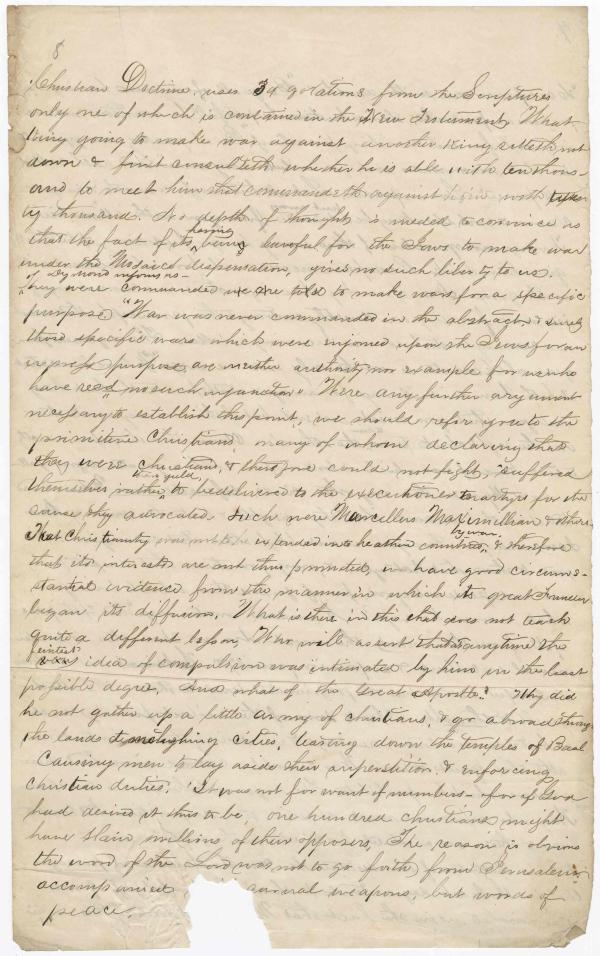 8
Christian Doctrine, uses 34 qotations from the Scriptures
only one of which is contained in the New Testament, What
King going to make war against another King sitteth not
down & first consulteth whether he is able with ten thous-
and to meet him that commandeth against him with twen
ty thousand. No depth of thought is needed to convince us
having
that the fact of its being lawful for the Jews to make war
under the Mosaic dispensation, gives no such liberty to us.
as Dymond informs us—
They were commanded we are told to make wars for a specific
purpose "War was never commanded in the abstract & surely
those specific wars which were injoined upon the Jews for an
express purpose are neither authority nor example for us who
have recd no such injunction" Were any further argument
necessary to establish this point, we should refer you to the
primitive Christians, many of whom declaring that
they were Christians, & therefore could not fight, suffered
themselves rather to be delivered to the executioner martyrs for the
cause they advocated. Such were Marcellus Maximillian & others
by war.
That Christianity was not to be extended into heathen countries, & therefore
that its interests are not thus promoted, we have good circums-
tantial evidence from the manner in which its great Founder
began its diffusion. What is there in this that does not teach
quite a different lesson. Who will assert that at anytime the
faintest
idea of compulsion was intimated by him in the least
possible degree. And what of the Great Apostle? Why did
he not gather up a little army of christians, & go abroad through
the lands demolishing cities, tearing down the temples of Baal
Causing men to lay aside their superstition & enforcing
Christian duties. It was not for want of numbers— for if God
had desired it thus to be, one hundred christians might
have slain millions of their opposers. The reason is obvious
the word of the Lord was not to go forth from Jerusalem
accompanied carnal weapons, but words of
peace.